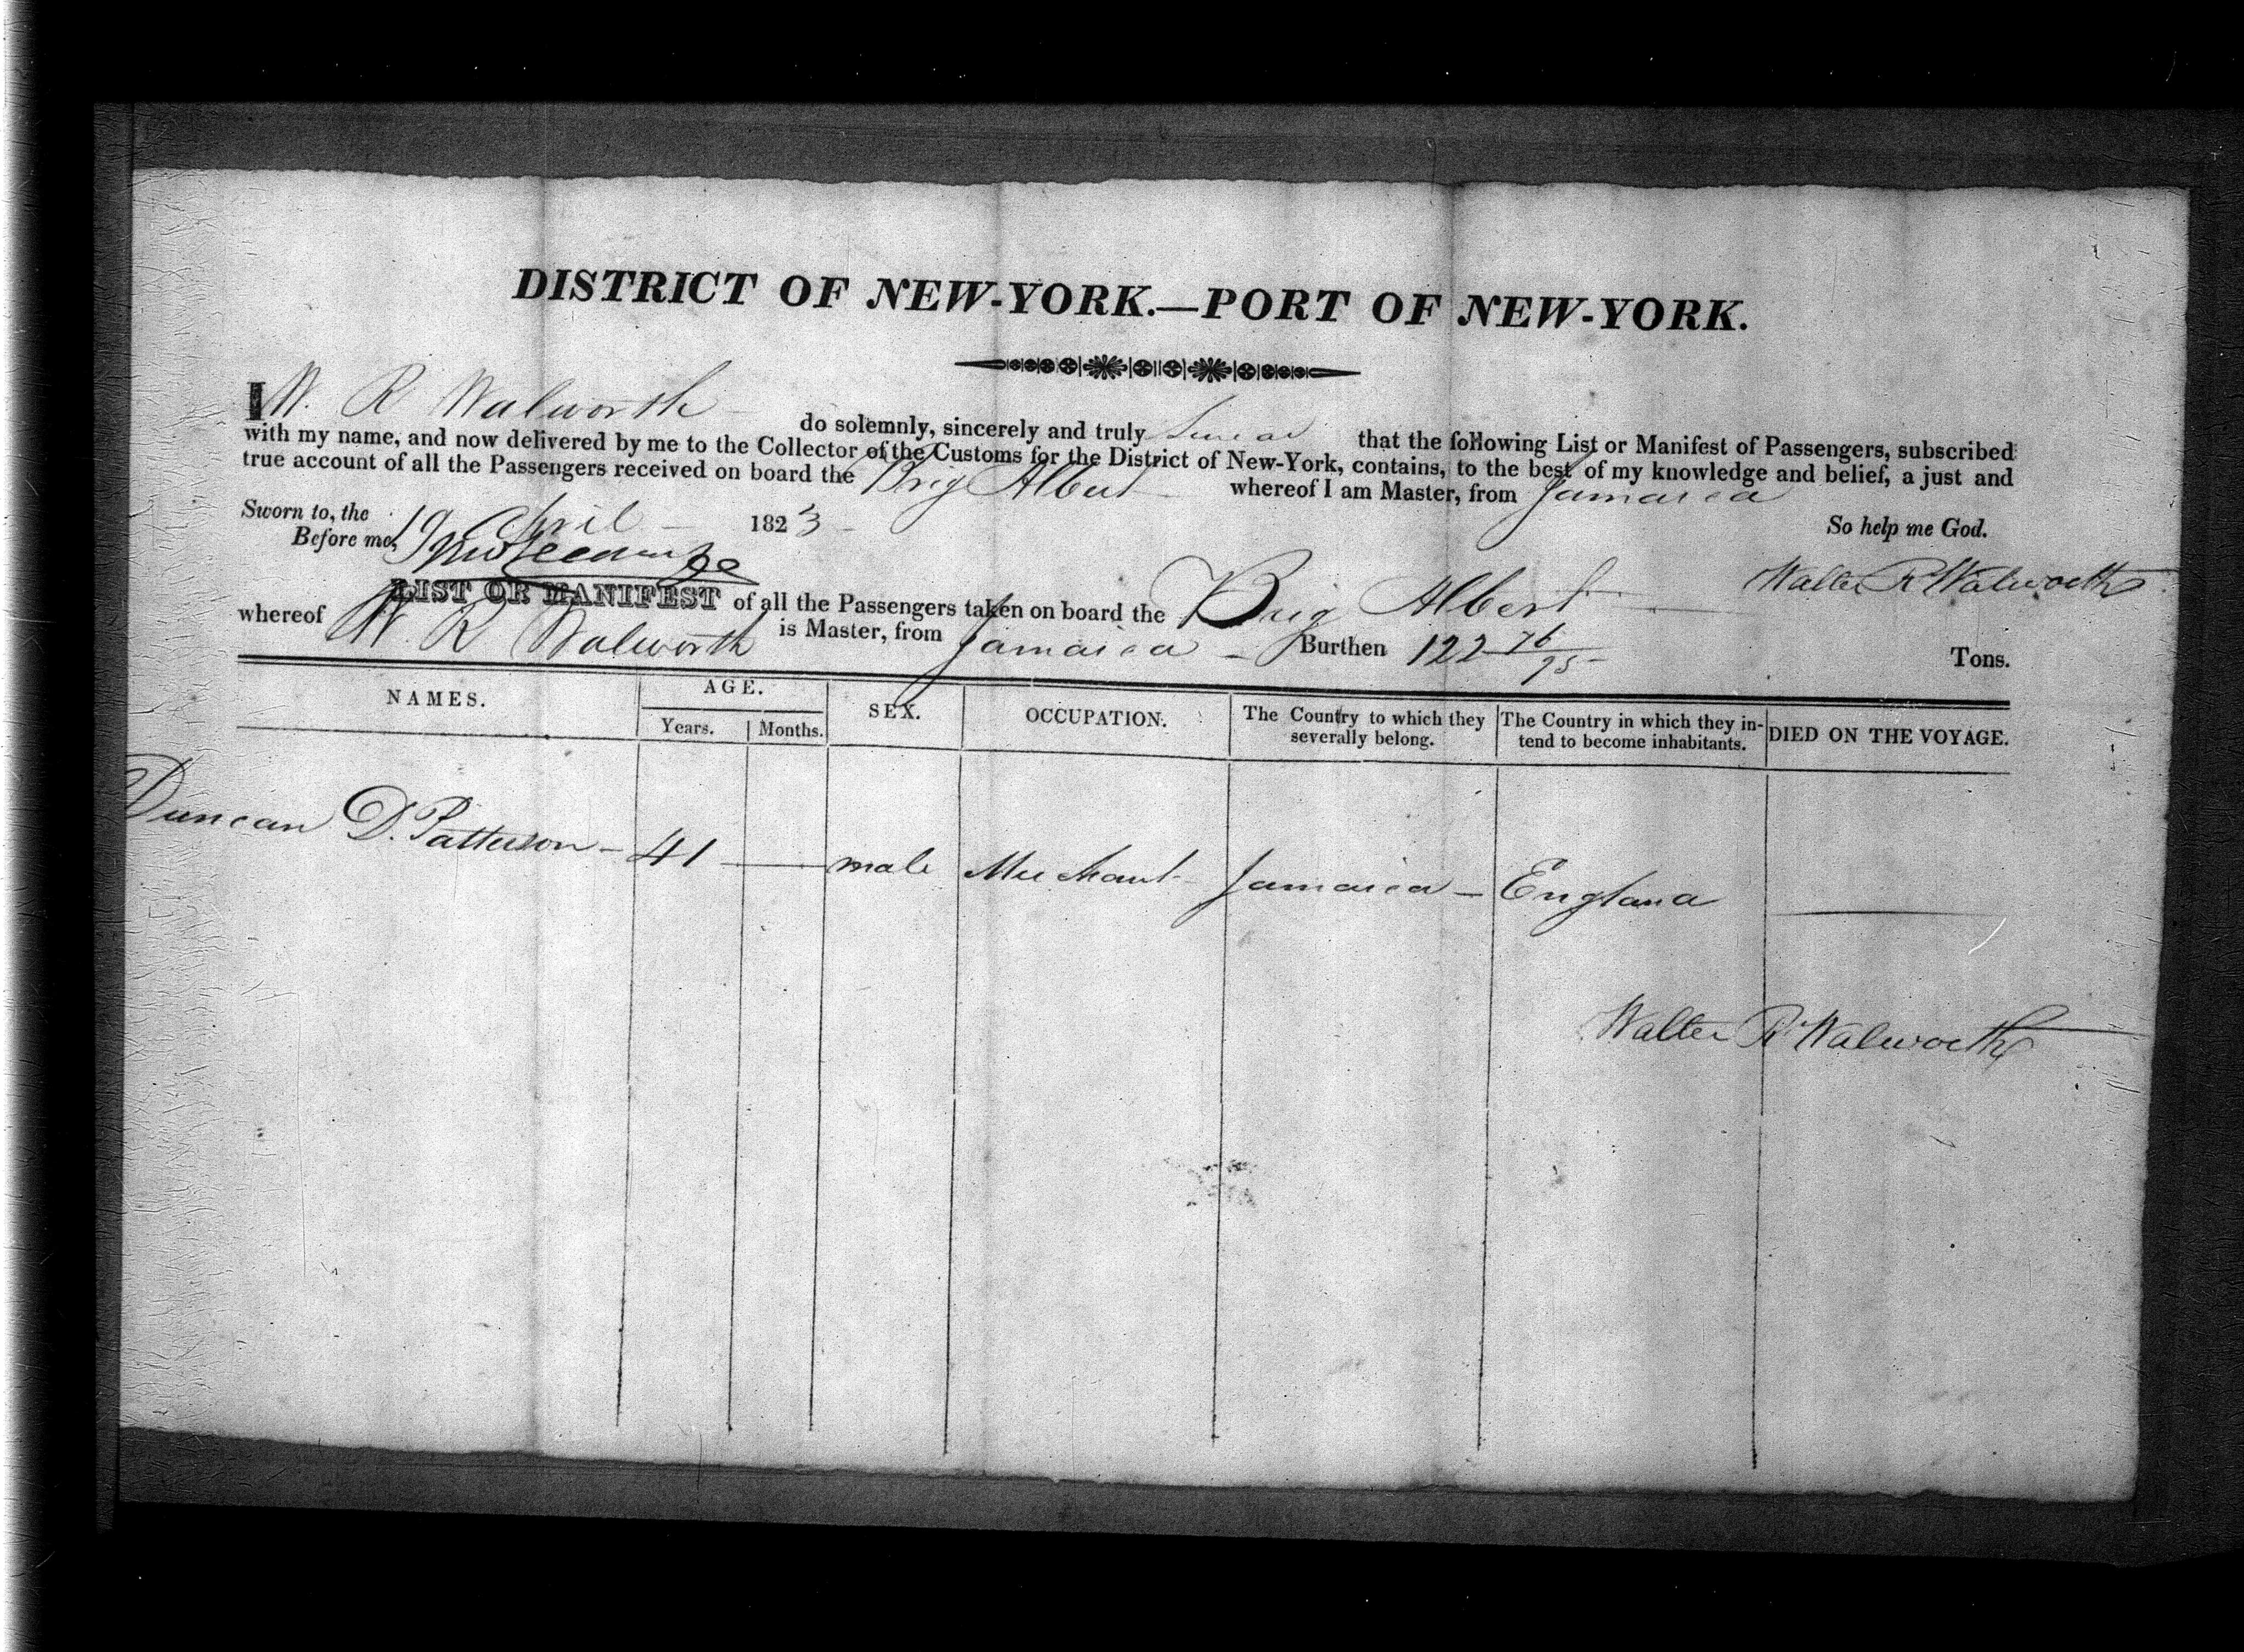 DISTRICT OF NEW-YORK.—PORT OF NEW-YORK.
I W. R Walworth do solemnly, sincerely and truly Swear that the following List or Manifest of Passengers, subscribed
with my name, and now delivered by me to the Collector of the Customs for the District of New-York, contains, to the best of my knowledge and belief, a just and
true account of all the Passengers received on board the Brig Albert whereof I am Master, from Jamaica
Sworn to, the 19 April 1823 So help me God.
Before me,
Walter R Walworth
LIST OR MANIFEST of all the Passengers taken on board the Brig Albert
whereof W. R Walworth is Master, from Jamaica Burthen 122 76/95 Tons.
NAMES. AGE. SEX. OCCUPATION. The Country to which they severally belong. The Country in which they intend to become inhabitants. DIED ON THE VOYAGE.
Years. Months.
Duncan D. Patterson 41 male Merchant Jamaica England
Walter R. Walworth